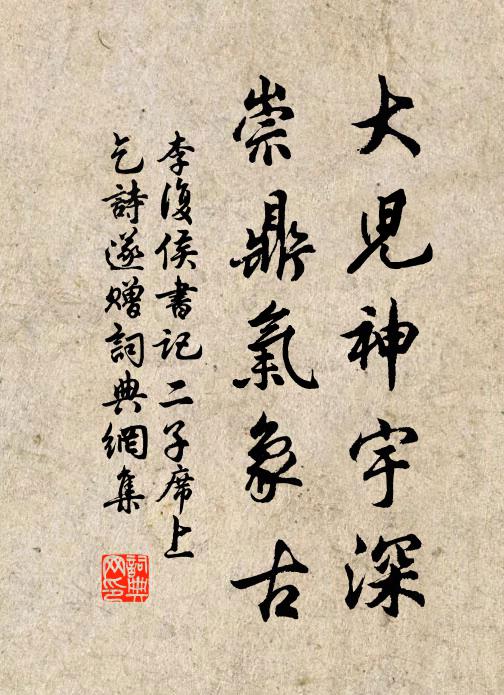 大児神宇深
崇鼎氣象古
李復侯書記二子席上
乞詩遂贈詞典網集
詞典網印